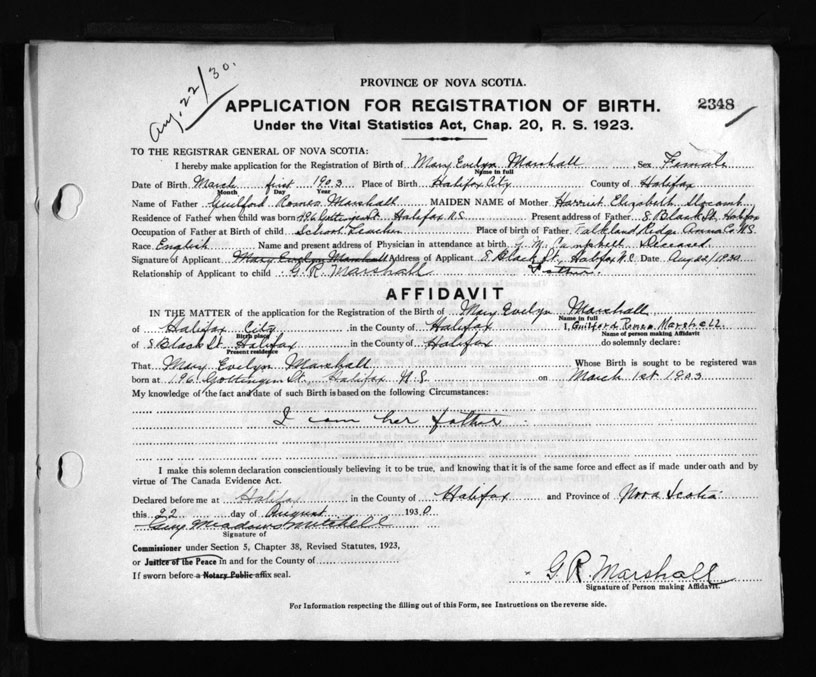 Aug. 22/30.
PROVINCE OF NOVA SCOTIA.
APPLICATION FOR REGISTRATION OF BIRTH. 2348
Under the Vital Statistics Act, Chap. 20, R. S. 1923.
TO THE REGISTRAR GENERAL OF NOVA SCOTIA:
I hereby make application for the Registration of Birth of Mary Evelyn Marshall, Sex Female
Name in full
Date of Birth March first 1903 Place of Birth Halifax City County of Halifax
Month Day Year
Name of Father Guilford Romeo Marshall MAIDEN NAME of Mother Harriet Elizabeth
Residence of Father when child was born 196 Gottingen St. Halifax N.S. Present address of Father 8 Black St. Halifax
Occupation of Father at Birth of child School Teacher Place of birth of Father Falkland Ridge Anna Co. N.S.
Race English Name and present address of Physician in attendance at birth M. Campbell Deceased
Signature of Applicant Mary Evelyn Marshall Address of Applicant 8 Black St., Halifax N.S. Date Aug 22/1930
Relationship of Applicant to child G. R. Marshall Father.
AFFIDAVIT
IN THE MATTER of the application for the Registration of the Birth of Mary Evelyn Marshall
Name in full
of Halifax City in the County of Halifax I, Guilford Romeo Marshall
Birth place Name of person making Affidavit
of 8 Black St. Halifax in the County of Halifax do solemnly declare:
Present residence
That Mary Evelyn Marshall Whose Birth is sought to be registered was
born at 196 Gottingen St., Halifax N.S. on March 1st 1903
My knowledge of the fact and date of such Birth is based on the following Circumstances:
I am her father.
I make this solemn declaration conscientiously believing it to be true, and knowing that it is of the same force and effect as if made under oath and by
virtue of The Canada Evidence Act.
Declared before me at Halifax in the County of Halifax and Province of Nova Scotia
this 22 day of August 1930
Guy Meadows Mitchell
Signature of
Commissioner under Section 5, Chapter 38, Revised Statutes, 1923,
or Justice of the Peace in and for the County of
If sworn before a Notary Public affix seal.
G. R. Marshall
Signature of Person making Affidavit.
For Information respecting the filling out of this Form, see Instructions on the reverse side.